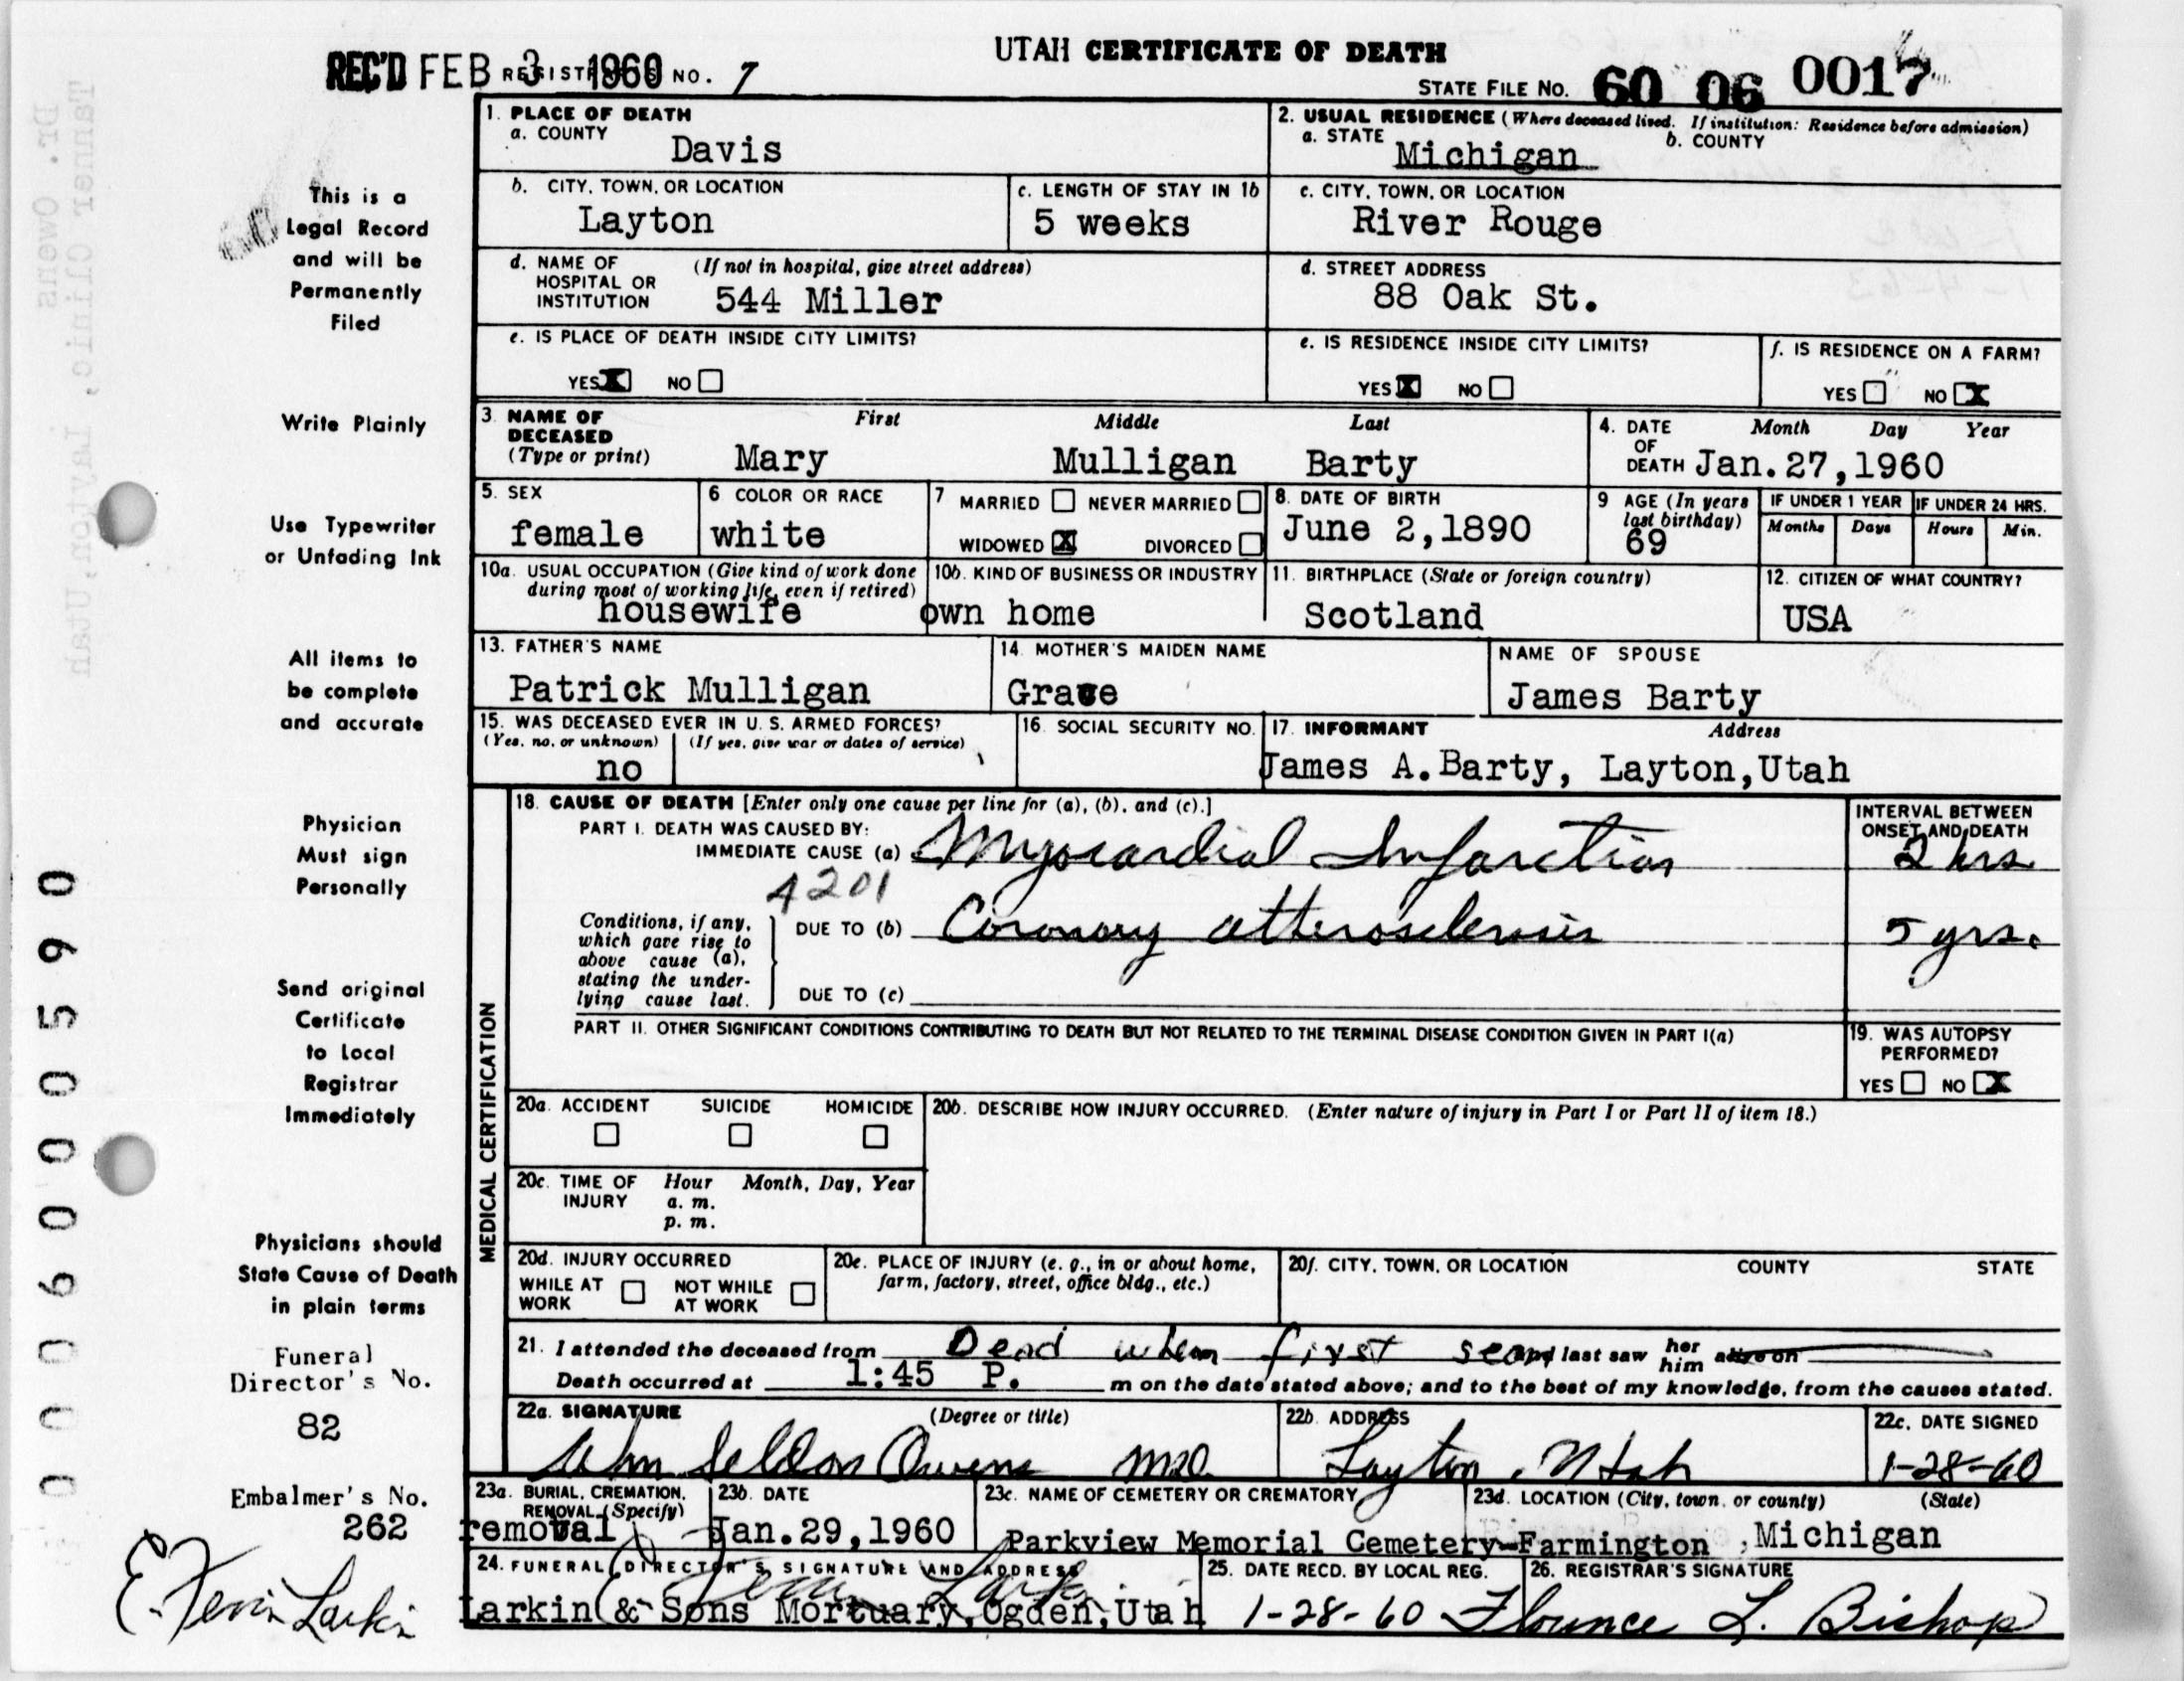 UTAH CERTIFICATE OF DEATH
REC'D FEB 3 1960 REGISTRAR'S NO. 7
STATE FILE NO. 60 06 0017
1. PLACE OF DEATH
a. COUNTY
Davis
2. USUAL RESIDENCE (Where deceased lived. If institution: Residence before admission)
a. STATE b. COUNTY
Michigan
b. CITY, TOWN, OR LOCATION
Layton
c. LENGTH OF STAY IN 1b
5 weeks
c. CITY, TOWN, OR LOCATION
River Rouge
d. NAME OF (If not in hospital, give street address)
HOSPITAL OR
INSTITUTION 544 Miller
d. STREET ADDRESS
88 Oak St.
e. IS PLACE OF DEATH INSIDE CITY LIMITS?
YES X NO
e. IS RESIDENCE INSIDE CITY LIMITS?
YES X NO
f. IS RESIDENCE ON A FARM?
YES NO X
3. NAME OF DECEASED (Type or print)
First Middle Last
Mary Mulligan Barty
4. DATE OF DEATH Month Day Year
Jan. 27,1960
5. SEX
female
6 COLOR OR RACE
white
7 MARRIED NEVER MARRIED
WIDOWED X DIVORCED
8. DATE OF BIRTH
June 2,1890
9 AGE (In years last birthday)
69
IF UNDER 1 YEAR IF UNDER 24 HRS.
Months Days Hours Min.
10a. USUAL OCCUPATION (Give kind of work done
during most of working life, even if retired)
housewife
10b. KIND OF BUSINESS OR INDUSTRY
own home
11. BIRTHPLACE (State or foreign country)
Scotland
12. CITIZEN OF WHAT COUNTRY?
USA
13. FATHER'S NAME
Patrick Mulligan
14. MOTHER'S MAIDEN NAME
NAME OF SPOUSE
James Barty
15. WAS DECEASED EVER IN U. S. ARMED FORCES?
(Yes, no, or unknown) (If yes, give war or dates of service)
no
16. SOCIAL SECURITY NO.
17. INFORMANT Address
James A.Barty, Layton,Utah
MEDICAL CERTIFICATION
18. CAUSE OF DEATH [Enter only one cause per line for (a), (b), and (c).]
INTERVAL BETWEEN
ONSET AND DEATH
PART I. DEATH WAS CAUSED BY:
IMMEDIATE CAUSE (a) Myocardial Infarction 2 hrs.
4201
Conditions, if any,
which gave rise to
above cause (a),
stating the under-
lying cause last.
DUE TO (b) Coronary atherosclerosis 5 yrs.
DUE TO (c)
PART II. OTHER SIGNIFICANT CONDITIONS CONTRIBUTING TO DEATH BUT NOT RELATED TO THE TERMINAL DISEASE CONDITION GIVEN IN PART I(a)
19. WAS AUTOPSY
PERFORMED?
YES NO X
20a. ACCIDENT SUICIDE HOMICIDE
20b. DESCRIBE HOW INJURY OCCURRED. (Enter nature of injury in Part I or Part II of item 18.)
20c. TIME OF INJURY Hour Month, Day, Year
a. m.
p. m.
20d. INJURY OCCURRED
WHILE AT WORK NOT WHILE AT WORK
20e. PLACE OF INJURY (e. g., in or about home,
farm, factory, street, office bldg., etc.)
20f. CITY, TOWN, OR LOCATION COUNTY STATE
21. I attended the deceased from Dead when first seen and last saw her him alive on
Death occurred at 1:45 P. m on the date stated above; and to the best of my knowledge, from the causes stated.
22a. SIGNATURE (Degree or title)
Wm Seldon Owens MD.
22b. ADDRESS
Layton, Utah
22c. DATE SIGNED
1-28-60
23a. BURIAL, CREMATION,
REMOVAL (Specify)
removal
23b. DATE
Jan.29,1960
23c. NAME OF CEMETERY OR CREMATORY
Parkview Memorial Cemetery-Farmington
23d. LOCATION (City, town, or county) (State)
, Michigan
24. FUNERAL DIRECTOR'S SIGNATURE AND ADDRESS
Larkin & Sons Mortuary, Ogden,Utah
25. DATE RECD. BY LOCAL REG.
1-28-60
26. REGISTRAR'S SIGNATURE
Florence L. Bishop
This is a
Legal Record
and will be
Permanently
Filed
Write Plainly
Use Typewriter
or Unfading Ink
All items to
be complete
and accurate
Physician
Must sign
Personally
Send original
Certificate
to Local
Registrar
Immediately
Physicians should
State Cause of Death
in plain terms
Funeral
Director's No.
82
Embalmer's No.
262
E. Kevin Larkin
Tanner Clinic, Layton,Utah
Dr. Owens
0000600590